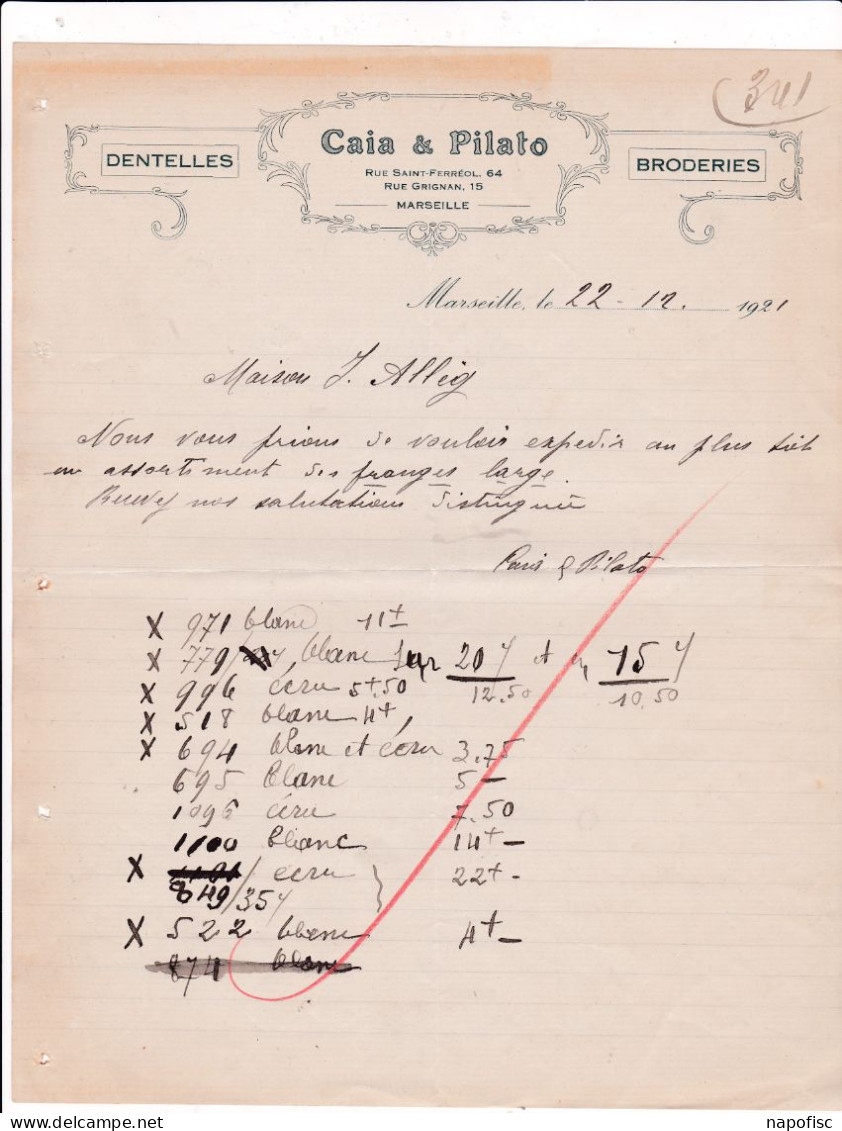 341
DENTELLES
Caia & Pilato
BRODERIES
RUE SAINT-FERRÉOL, 64
RUE GRIGNAN, 15
MARSEILLE
Marseille, le 22 - 12. 1921
Maison J. Allég
Nous vous prions de vouloir expedir au plus tôt
un assortiment des franges large.
nos salutations distingués
& Pilato
X 971 blanc 11+
X 779/ blanc 20 et 15
12.50 10.50
X 996 écru 5+.50
X 518 blanc 4+
X 694 blanc et écru 3.75
695 blanc 5 —
1096 écru 7.50
1100 blanc 14+ —
X écru 22+ -
849/35
X 522 blanc 4+ —
874 blanc
napofisc
www.delcampe.net